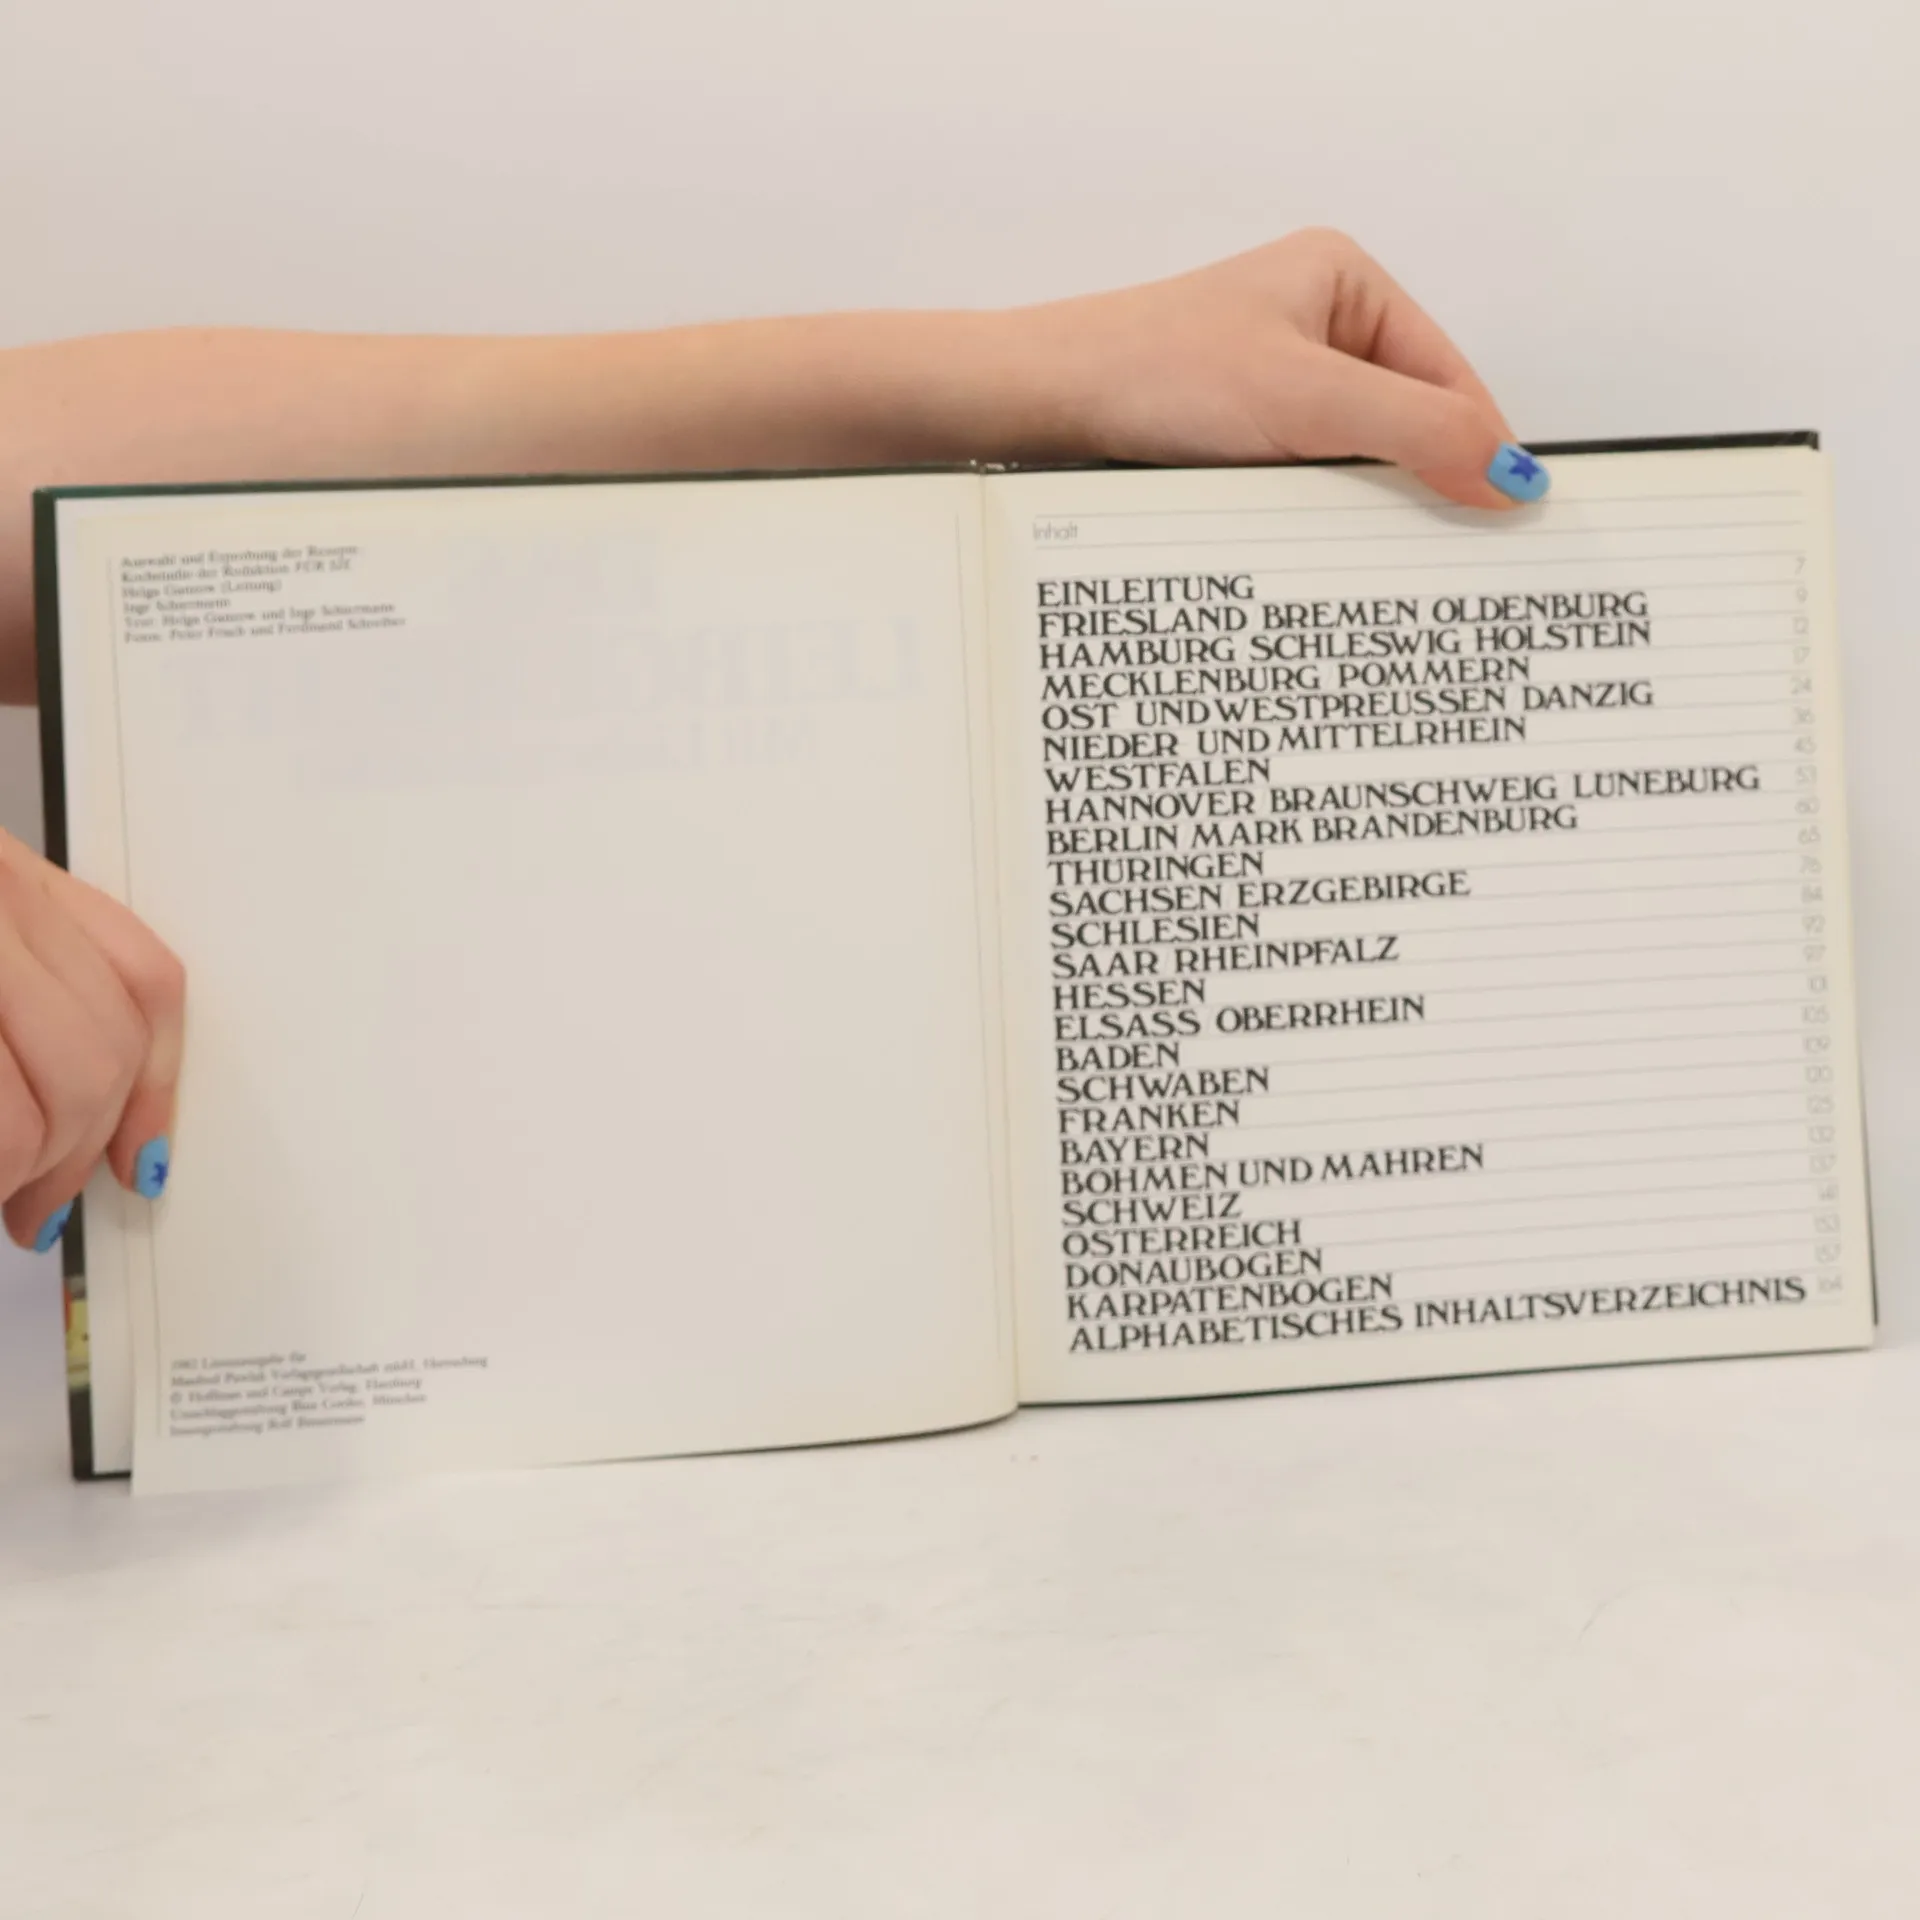 Auswahl und Erprobung der Rezepte:
Kochstudio der Redaktion FÜR SIE
Helga (Leitung)
Inge
Text: Helga und Inge
Fotos: Peter und Ferdinand Schreiber
1982 Lizenzausgabe für
Manfred Pawlak Verlagsgesellschaft mbH, Herrsching
© Hoffmann und Campe Verlag, Hamburg
Umschlaggestaltung Bine Cordes, München
Innengestaltung Rolf
Inhalt
EINLEITUNG 7
FRIESLAND BREMEN OLDENBURG 9
HAMBURG SCHLESWIG HOLSTEIN
MECKLENBURG POMMERN 17
OST UND WESTPREUSSEN DANZIG 24
NIEDER UND MITTELRHEIN 36
WESTFALEN 45
HANNOVER BRAUNSCHWEIG LUNEBURG 53
BERLIN MARK BRANDENBURG 60
THURINGEN 65
SACHSEN ERZGEBIRGE 76
SCHLESIEN 84
SAAR RHEINPFALZ
HESSEN 97
ELSASS OBERRHEIN
BADEN
SCHWABEN
FRANKEN
BAYERN
BOHMEN UND MAHREN
SCHWEIZ
OSTERREICH
DONAUBOGEN
KARPATENBOGEN
ALPHABETISCHES INHALTSVERZEICHNIS 164